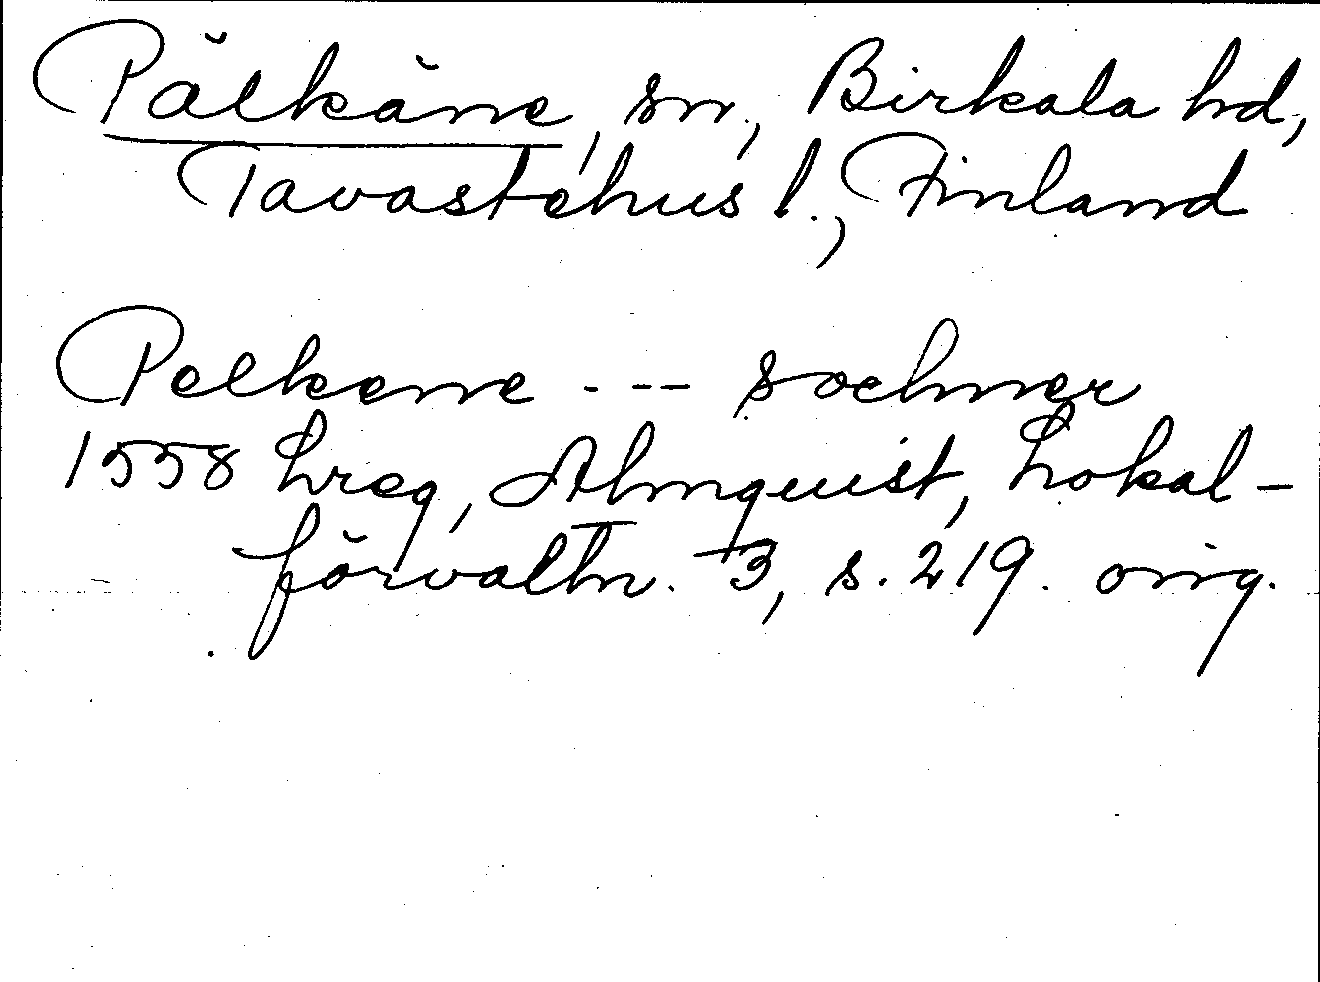 Pälkäne, sn, Birkala hd,
Tavastehus l., Finland
Pelkene - -- soehner
1558 hreg, Almquist, Lokal-
förvaltn. 3, s. 219. orig.